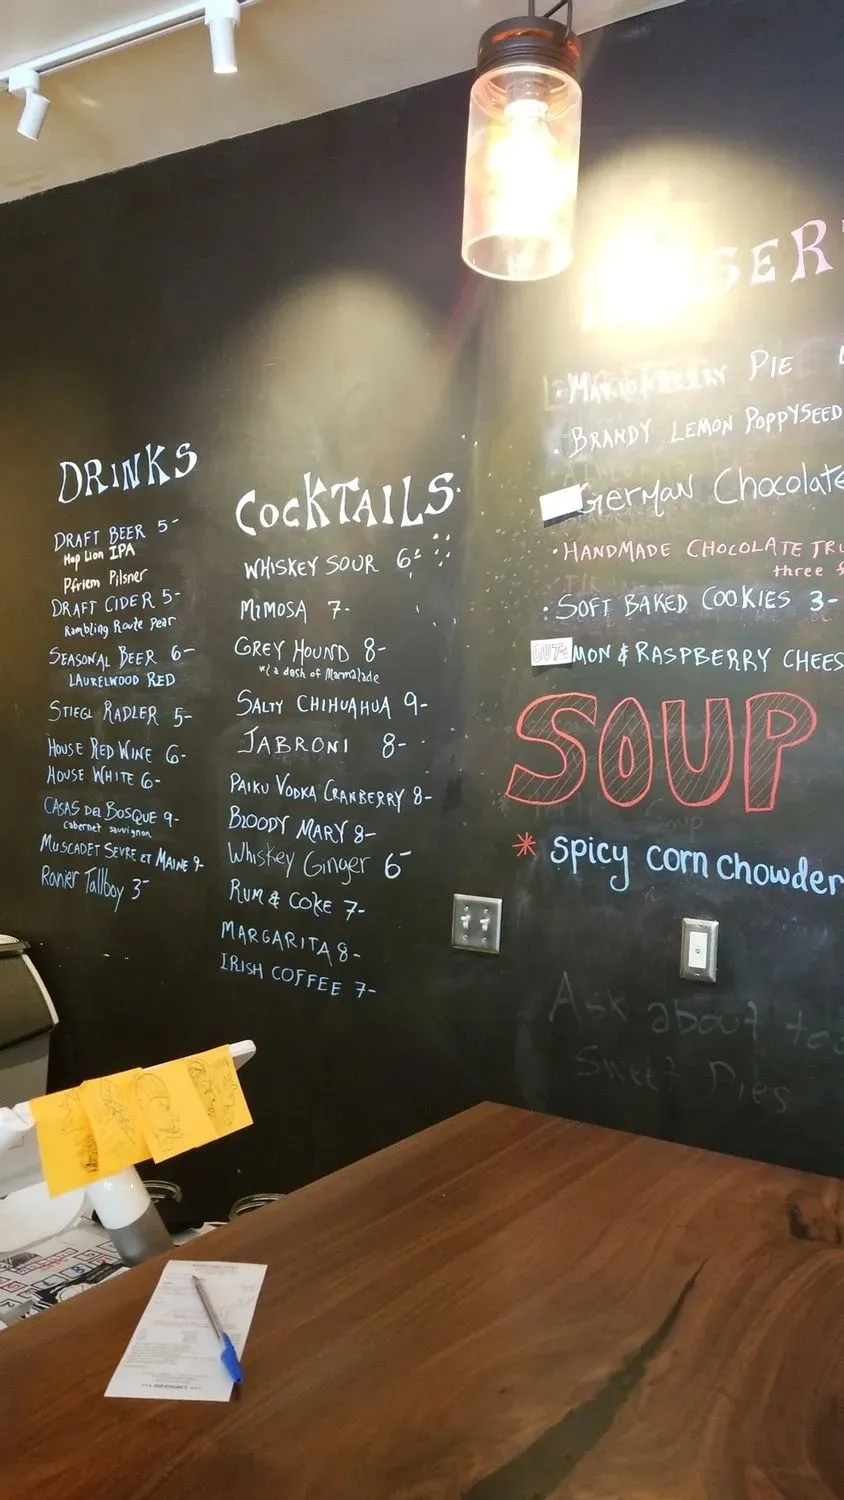 DRINKS
DRAFT BEER 5-
Hop Lion IPA
Pfriem Pilsner
DRAFT CIDER 5-
Rambling Route Pear
SEASONAL BEER 6-
LAURELWOOD RED
STIEGL RADLER 5-
HOUSE RED WINE 6-
HOUSE WHITE 6-
CASAS DEL BOSQUE 9-
cabernet sauvignon
MUSCADET SEVRE ET MAINE 9-
Ranier Tallboy 3-
COCKTAILS
WHISKEY SOUR 6-
MIMOSA 7-
GREY HOUND 8-
w/ a dash of Marmalade
SALTY CHIHUAHUA 9-
JABRONI 8-
PAIKU VODKA CRANBERRY 8-
BLOODY MARY 8-
Whiskey Ginger 6-
RUM & COKE 7-
MARGARITA 8-
IRISH COFFEE 7-
SERT
MARIONBERRY PIE
BRANDY LEMON POPPYSEED
German Chocolate
HANDMADE CHOCOLATE TRU
three f
SOFT BAKED COOKIES 3-
OUT MON & RASPBERRY CHEES
SOUP
* spicy corn chowder
Ask about to
Sweet Pies